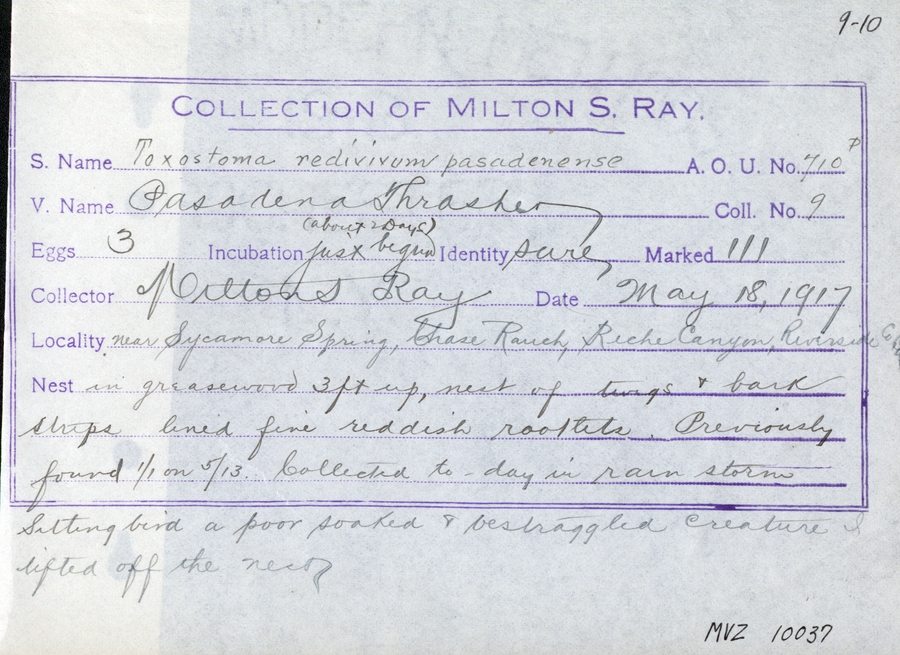 9-10
COLLECTION OF MILTON S. RAY.
S. Name Toxostoma redivivum pasadenense A. O. U. No. 710 P
V. Name Pasadena Thrasher Coll. No. 9
(about 2 Days)
Eggs 3 Incubation just begun Identity sure Marked 111
Collector Milton S Ray Date May 18, 1917
Locality near Sycamore Spring, Chase Ranch, Reche Canyon, Riverside Co
Nest in greasewood 3 ft up, nest of twigs & bark
strips lined fine reddish rootlets. Previously
found 1/1 on 5/13. Collected to-day in rain storm
Sitting bird a poor soaked & bestraggled creature I
lifted off the nest
MVZ 10037